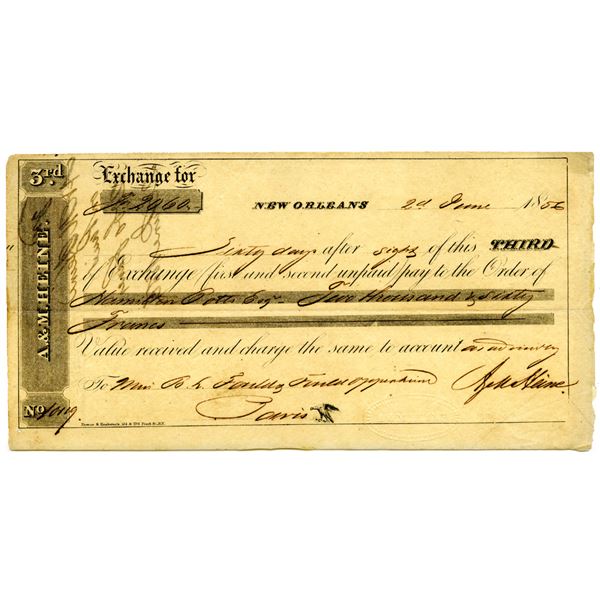 3rd
Exchange for
Fr. 2060.
NEW ORLEANS 2d June 1856
Sixty days after sight of this THIRD
of Exchange (first and second unpaid) pay to the Order of
Hamilton Potts Esqr Two thousand & sixty
Francs
Value received and charge the same to account as advised by
To B. L. Fould & Fould Oppenheim
Paris
A & M Heine
A. & M. HEINE.
No